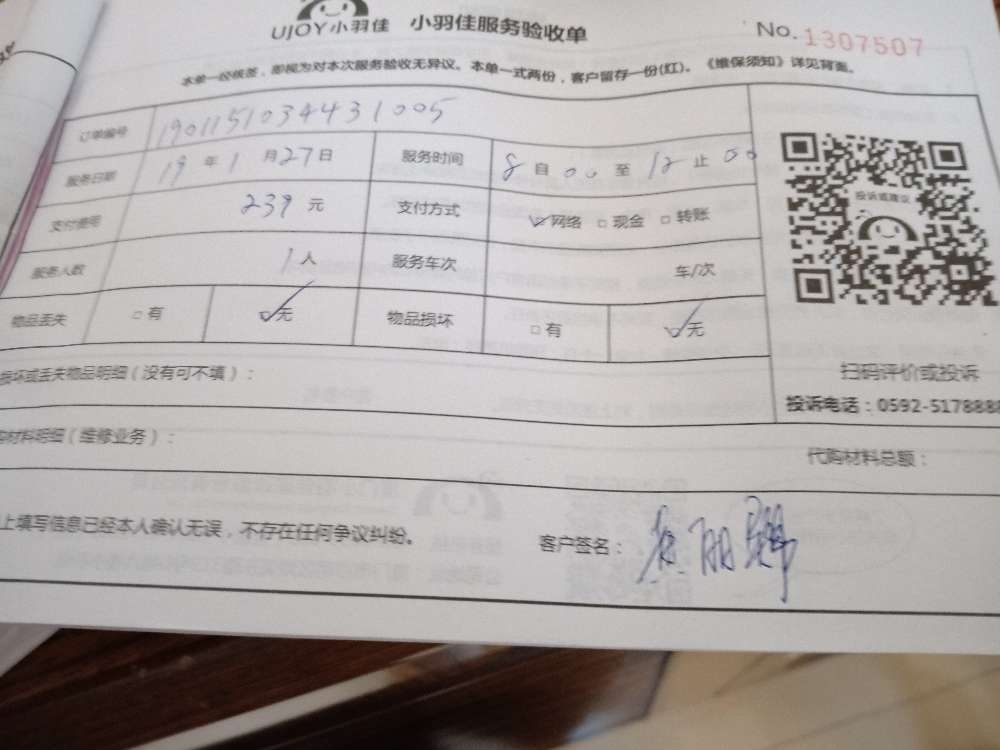 UJOY小羽佳 小羽佳服务验收单 No.1307507
本单一经核签，即视为对本次服务验收无异议。本单一式两份，客户留存一份(红)。《维保须知》详见背面。
订单编号 1901151034431005
服务日期 19年1月27日 服务时间 8自00至12止00
支付费用 239元 支付方式 ☑网络 □现金 □转账
服务人数 1人 服务车次 车/次
物品丢失 □有 ☑无 物品损坏 □有 ☑无
投诉或建议
扫码评价或投诉
投诉电话：0592-5178888
损坏或丢失物品明细（没有可不填）：
购材料明细（维修业务）： 代购材料总额：
上填写信息已经本人确认无误，不存在任何争议纠纷。 客户签名：